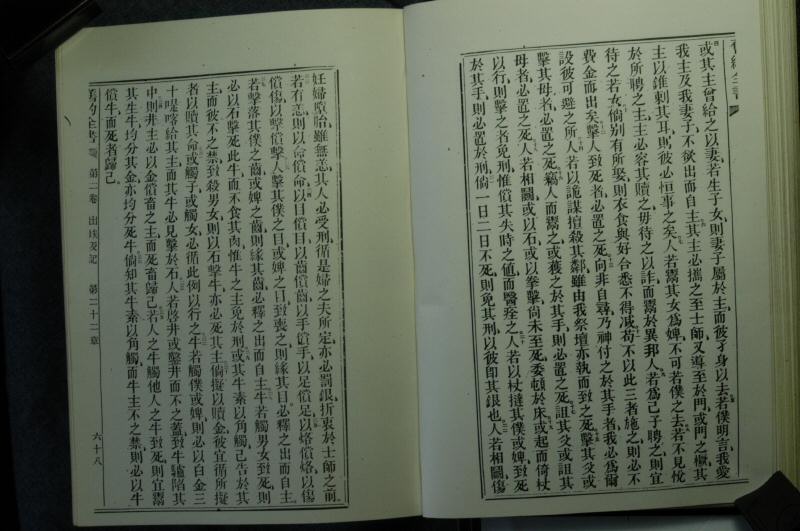 或其主曾給之以妻若生子女則妻子屬於主而彼孑身以去若僕明言我愛
我主及我妻子不欲出而自主其主必攜之至士師又導至於門或門之橛其
主以錐刺其耳則彼必恒事之矣人若鬻其女爲婢不可若僕之去若不見悅
於所聘之主主必容其贖之毋待之以詐而鬻於異邦人若爲己子聘之則宜
待之若女倘别有所娶則衣食與好合悉不得减苟不以此三者施之則必不
費金而出矣擊人致死者必置之死向非自尋乃神付之於其手者我必爲爾
設彼可遯之所人若以詭謀擅殺其鄰雖由我祭壇亦執而致之死擊其父或
擊其母者必置之死竊人而鬻之或獲之於其手則必置之死詛其父或詛其
母者必置之死人若相鬭或以石或以拳擊倘未至死委頓於床或起而倚杖
以行則擊之者免刑惟償其失時之値而醫痊之人若以杖撻其僕或婢致死
於其手則必置於刑倘一日二日不死則免其刑以彼卽其銀也人若相鬭傷
妊婦墮胎雖無恙其人必受刑循是婦之夫所定亦必罰銀折衷於士師之前
若有恙則以命償命以目償目以齒償齒以手償手以足償足以烙償烙以傷
償傷以擊償擊人擊其僕之目或婢之目致喪之則緣其目必釋之出而自主
若擊落其僕之齒或婢之齒則緣其齒必釋之出而自主牛若觸男女致死則
必以石擊死此牛而不食其肉惟牛之主免於刑或其牛素以角觸己告於其
主而彼不之禁致殺男女則以石擊牛亦必死其主倘擬以贖金彼宜循所擬
者以贖其命或觸子或觸女必循此例以行之牛若觸僕或婢則必以白金三
十㖷喀給其主而其牛必見擊於石人若啓井或鑿井而不之蓋致牛驢陷其
中則井主必以金償畜之主而死畜歸己若人之牛觸他人之牛致死則宜鬻
其生牛均分其金亦均分死牛倘知其牛素以角觸而牛主不之禁則必以牛
償牛而死者歸己
第二卷 出埃及記 第二十二章 六十八